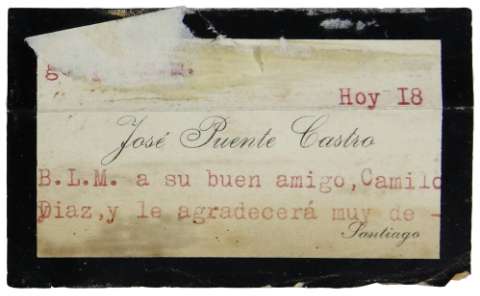 Hoy I8
José Puente Castro
B.L.M. a su buen amigo,Camilo
Diaz,y le agradecerá muy de -
Santiago